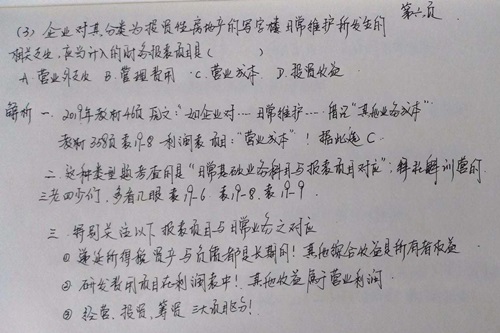 第六页
(3) 企业对其分类为投资性房地产的写字楼日常维护所发生的
相关支出,应当计入的财务报表项目是( )
A.营业外支出 B.管理费用 C.营业成本 D.投资收益
解析 一. 2019年教材46页原文:"如企业对…日常维护…借记"其他业务成本"
教材358页表19-8 利润表项目:"营业成本"!据此选C.
二. 这种类型题考查的是"日常基础业务科目与报表项目对应",训营的
三老四少们,多看几眼表19-6.表19-8.表19-9.
三. 特别关注以下报表项目与日常业务之对应
① 递延所得税资产与负债都是长期的!其他综合收益是所有者权益
② 研发费用项目在利润表中!其他收益属于营业利润
③ 经营、投资、筹资三大项目区分!